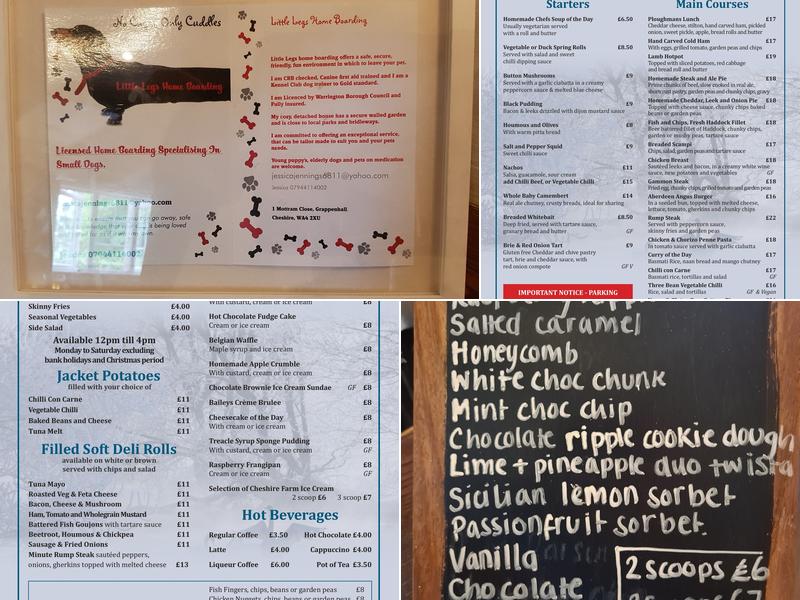 No Only Cuddles
Little Legs Home Boarding
Licensed Home Boarding Specialising In
Small Dogs.
Little Legs Home Boarding
Little Legs home boarding offers a safe, secure,
friendly, fun environment in which to leave your pet.
I am CRB checked, Canine first aid trained and I am a
Kennel Club dog trainer to Gold standard.
I am Licenced by Warrington Borough Council and
Fully insured.
My cosy, detached house has a secure walled garden
and is close to local parks and bridleways.
I am committed to offering an exceptional service,
that can be tailor made to suit you and your pets
needs.
Young puppy's, elderly dogs and pets on medication
are welcome.
jessicajennings6811@yahoo.com
Jessica 07944114002
1 Motram Close, Grappenhall
Cheshire, WA4 2XU
Starters
Homemade Chefs Soup of the Day £6.50
Usually vegetarian served
with a roll and butter
Vegetable or Duck Spring Rolls £8.50
Served with salad and sweet
chilli dipping sauce
Button Mushrooms £9
Served with a garlic ciabatta in a creamy
peppercorn sauce & melted blue cheese
Black Pudding £9
Bacon & leeks drizzled with dijon mustard sauce
Houmous and Olives £8
With warm pitta bread
Salt and Pepper Squid £9
Sweet chilli sauce
Nachos £11
Salsa, guacamole, sour cream
add Chilli Beef, or Vegetable Chilli £15
Whole Baby Camembert £14
Real ale chutney, crusty breads, ideal for sharing
Breaded Whitebait £8.50
Deep fried, served with tartare sauce,
granary bread and butter GF
Brie & Red Onion Tart £9
Gluten free Cheddar and chive pastry
tart, brie and cheddar sauce, with
red onion compote GF V
IMPORTANT NOTICE - PARKING
Main Courses
Ploughmans Lunch £17
Cheddar cheese, stilton, hand carved ham, pickled
onion, sweet pickle, apple, bread rolls and butter
Hand Carved Cold Ham £17
With eggs, grilled tomato, garden peas and chips
Lamb Hotpot £19
Topped with sliced potatoes, red cabbage
and bread roll and butter
Homemade Steak and Ale Pie £18
Prime chunks of beef, slow cooked in real ale,
short crust pastry, garden peas and chunky chips, gravy
Homemade Cheddar, Leek and Onion Pie £18
Topped with cheese sauce, chunky chips baked
beans or garden peas
Fish and Chips, Fresh Haddock Fillet £18
Beer battered fillet of Haddock, chunky chips,
garden or mushy peas, tartare sauce
Breaded Scampi £17
Chips, salad, garden peas and tartare sauce
Chicken Breast £18
Sautéed leeks and bacon, in a creamy white wine
sauce, new potatoes and vegetables GF
Gammon Steak £18
Fried egg, chunky chips, grilled tomato and garden peas
Aberdeen Angus Burger £16
In a seeded bun, topped with melted cheese,
lettuce, tomato, gherkins and chunky chips
Rump Steak £22
Served with peppercorn sauce,
skinny fries and garden peas
Chicken & Chorizo Penne Pasta £18
In tomato sauce with garlic ciabatta
Curry of the Day £17
Basmati Rice, naan bread and mango chutney
Chilli con Carne £17
Basmati rice, tortillas and salad GF
Three Bean Vegetable Chilli £16
Rice, salad and tortillas GF & Vegan
Skinny Fries £4.00
Seasonal Vegetables £4.00
Side Salad £4.00
Available 12pm till 4pm
Monday to Saturday excluding
bank holidays and Christmas period
Jacket Potatoes
filled with your choice of
Chilli Con Carne £11
Vegetable Chilli £11
Baked Beans and Cheese £11
Tuna Melt £11
Filled Soft Deli Rolls
available on white or brown
served with chips and salad
Tuna Mayo £11
Roasted Veg & Feta Cheese £11
Bacon, Cheese & Mushroom £11
Ham, Tomato and Wholegrain Mustard £11
Battered Fish Goujons with tartare sauce £11
Beetroot, Houmous & Chickpea £11
Sausage & Fried Onions £11
Minute Rump Steak sautéed peppers,
onions, gherkins topped with melted cheese £13
With custard, cream or ice cream £8
Hot Chocolate Fudge Cake
Cream or ice cream £8
Belgian Waffle
Maple syrup and ice cream £8
Homemade Apple Crumble
With custard, cream or ice cream £8
Chocolate Brownie Ice Cream Sundae GF £8
Baileys Crème Brulee £8
Cheesecake of the Day £8
With cream or ice cream
Treacle Syrup Sponge Pudding £8
With custard, cream or ice cream GF
Raspberry Frangipan £8
Cream or ice cream GF
Selection of Cheshire Farm Ice Cream
2 scoop £6 3 scoop £7
Hot Beverages
Regular Coffee £3.50 Hot Chocolate £4.00
Latte £4.00 Cappuccino £4.00
Liqueur Coffee £6.00 Pot of Tea £3.50
Fish Fingers, chips, beans or garden peas £8
Chicken Nuggets, chips, beans or garden peas £8
Salted caramel
Honeycomb
White choc chunk
Mint choc chip
Chocolate ripple cookie dough
Lime + pineapple duo twista
Sicilian lemon sorbet
Passionfruit sorbet.
Vanilla
Chocolate
2 scoops £6